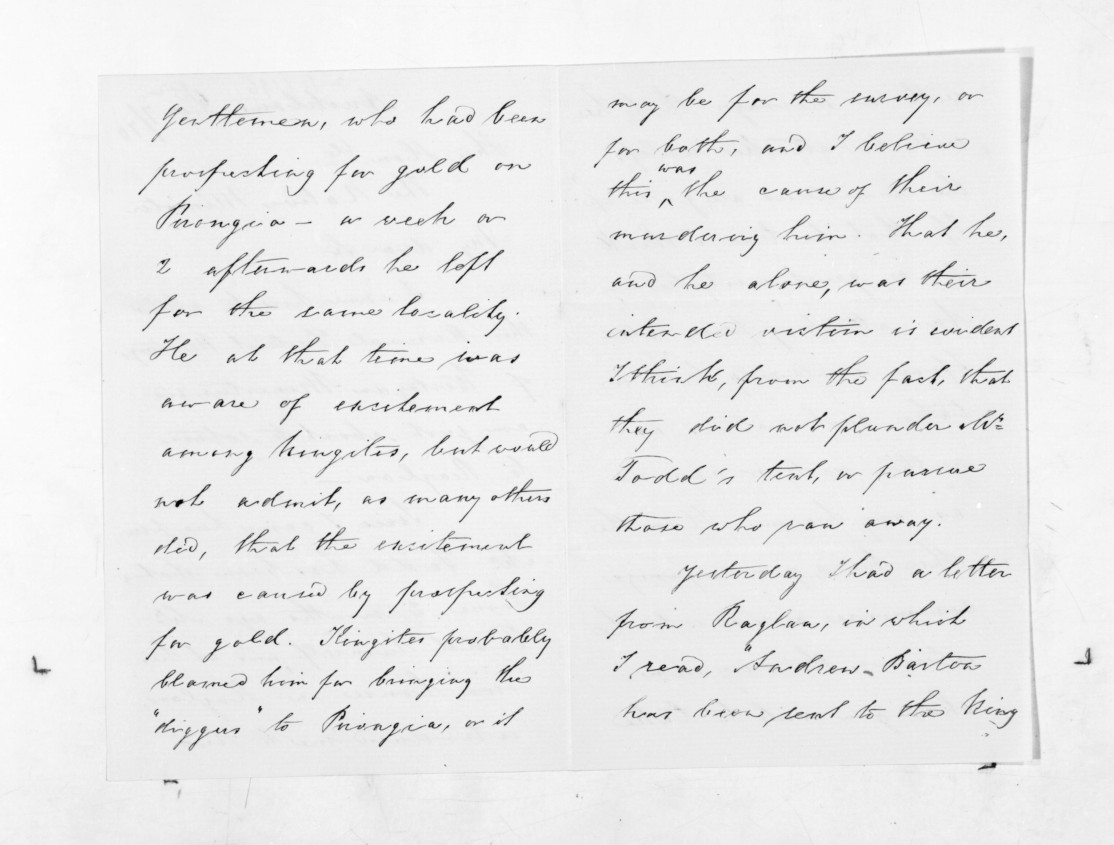 Gentlemen, who had been
prospecting for gold on
Pirongia – a week or
2 afterwards he left
for the same locality.
He at that time was
aware of excitement
among Kingites, but would
not admit, as many others
did, that the excitement
was caused by prospecting
for gold. Kingites probably
blamed him for bringing the
"diggers" to Pirongia, or it
may be for the survey, or
for both, and I believe
this was the cause of their
murdering him. That he,
and he alone, was their
intended victim is evident
I think, from the fact, that
they did not plunder Mr
Todd's tent, or pursue
those who ran away.
Yesterday I had a letter
from Raglan, in which
I read, "Andrew Barton
has been sent to the King